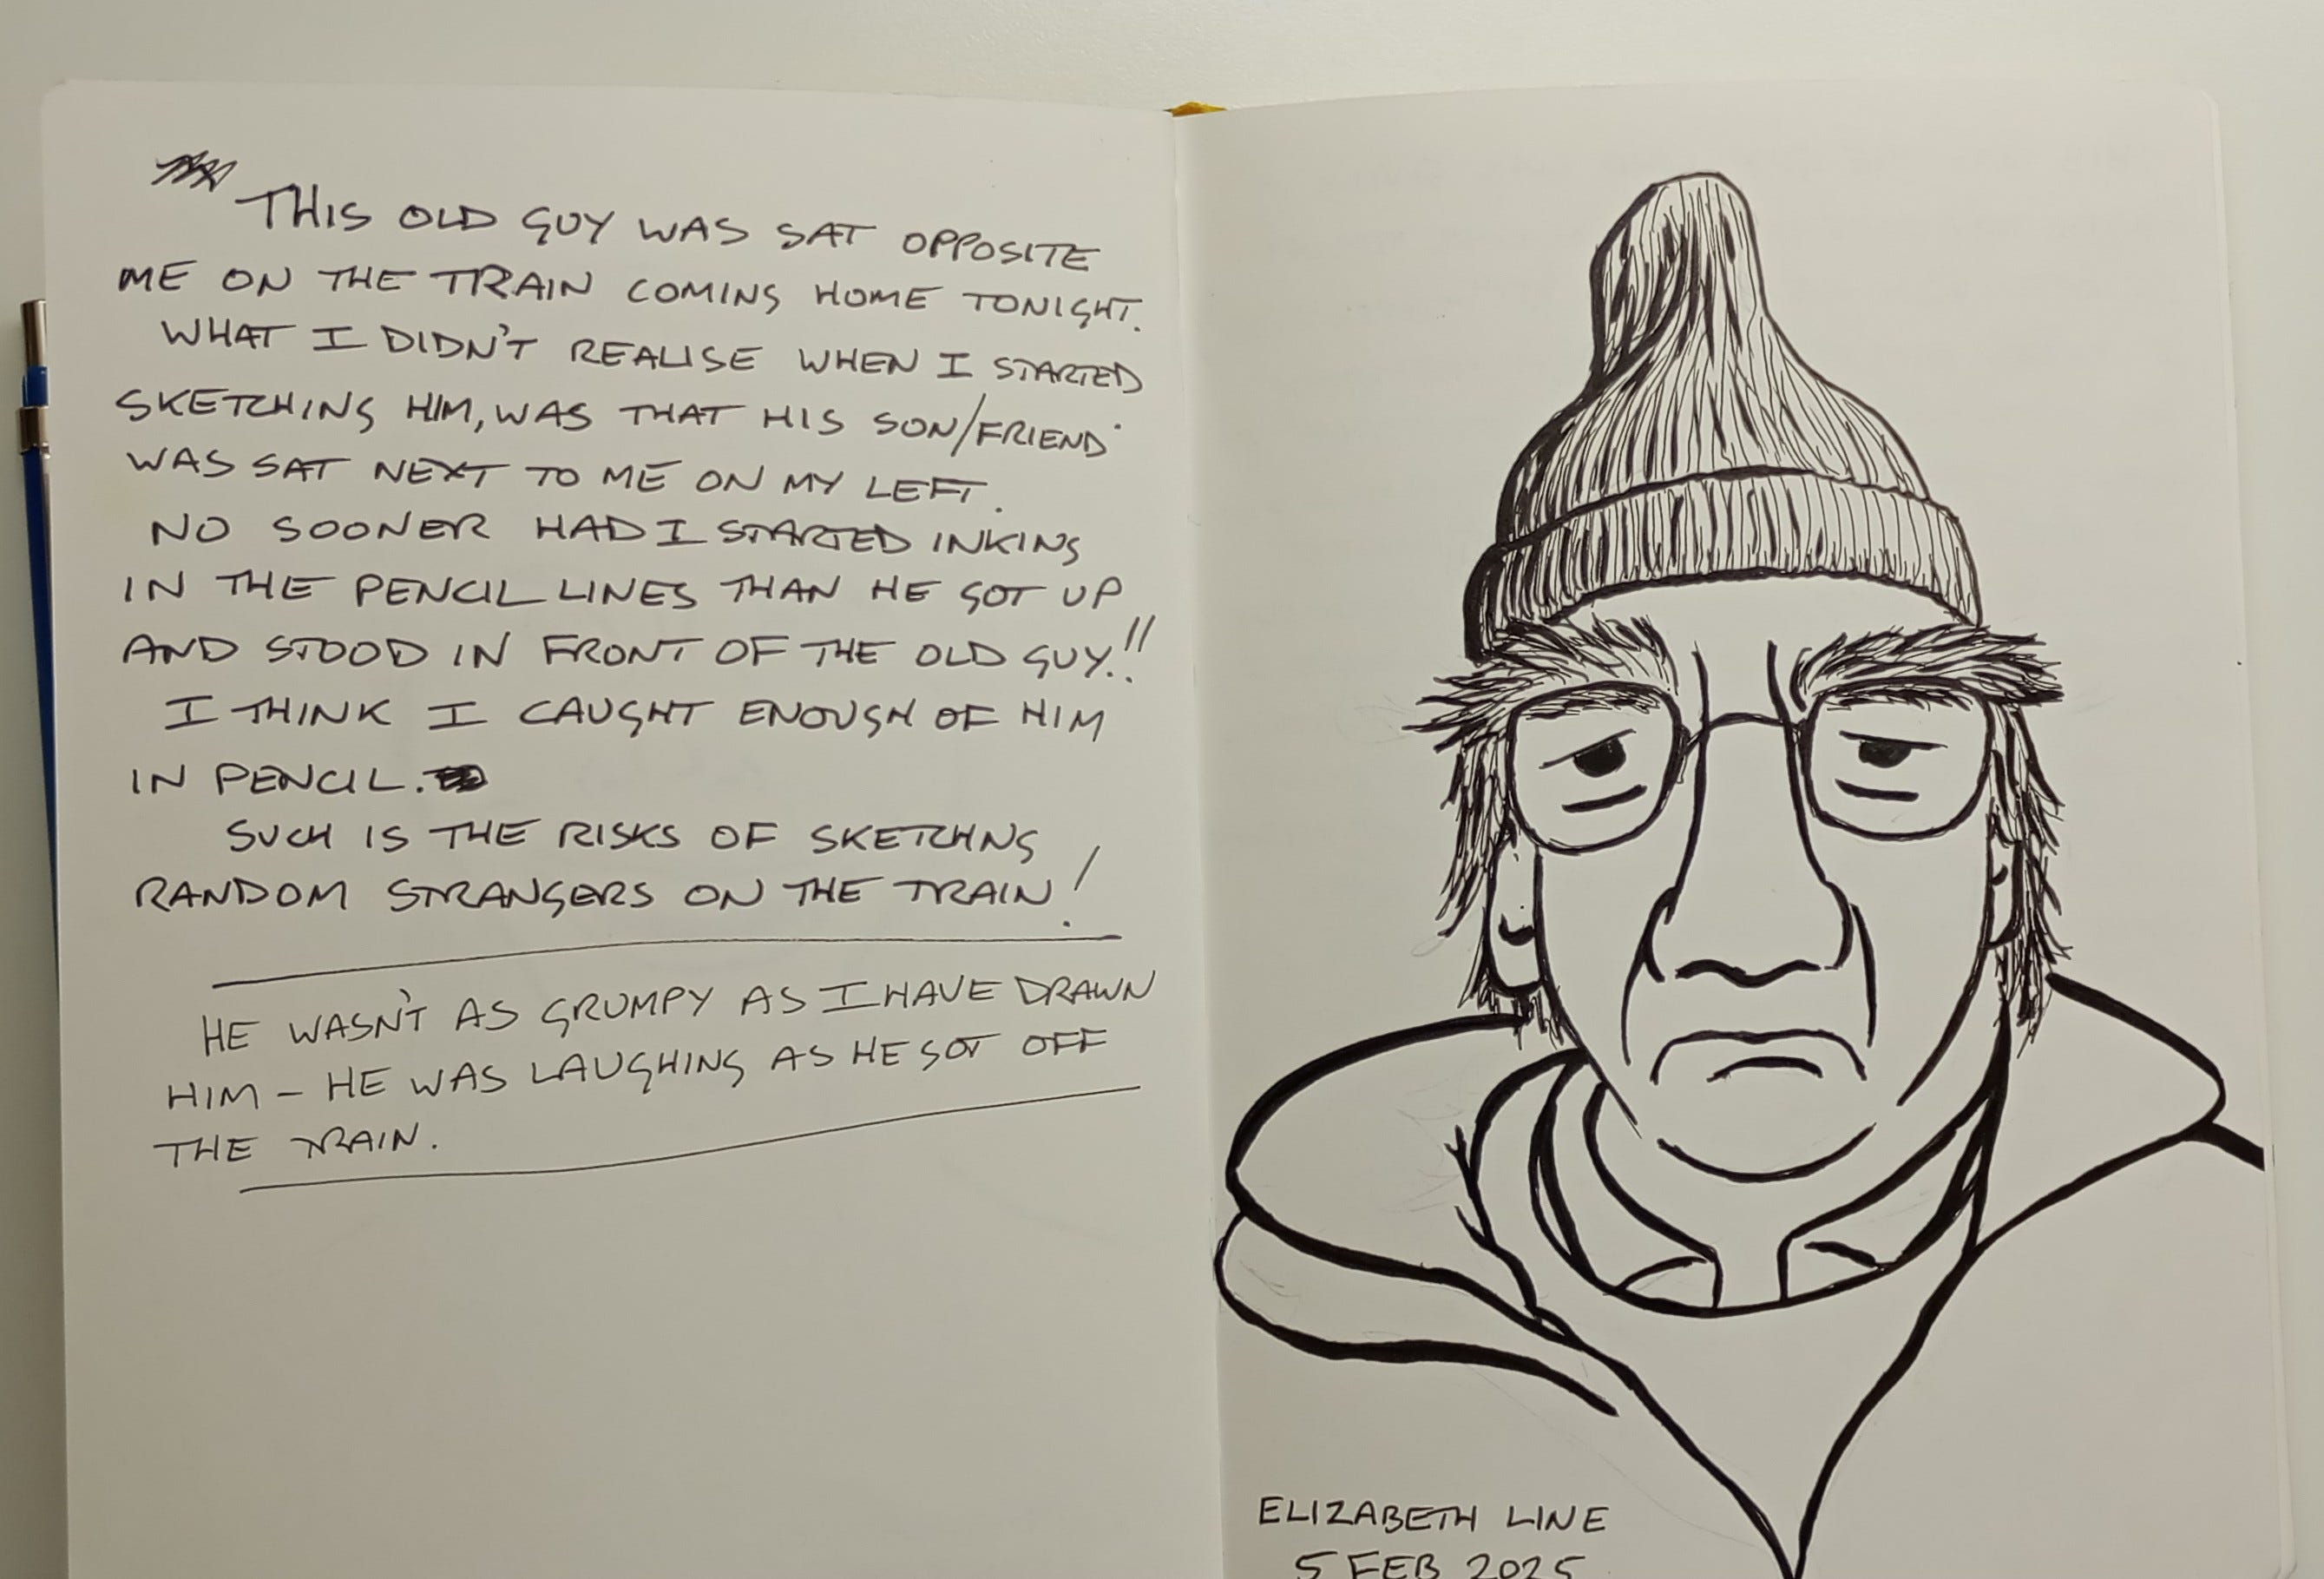 THIS OLD GUY WAS SAT OPPOSITE
ME ON THE TRAIN COMING HOME TONIGHT.
WHAT I DIDN'T REALISE WHEN I STARTED
SKETCHING HIM, WAS THAT HIS SON/FRIEND
WAS SAT NEXT TO ME ON MY LEFT.
NO SOONER HAD I STARTED INKING
IN THE PENCIL LINES THAN HE GOT UP
AND STOOD IN FRONT OF THE OLD GUY!!
I THINK I CAUGHT ENOUGH OF HIM
IN PENCIL.
SUCH IS THE RISKS OF SKETCHNG
RANDOM STRANGERS ON THE TRAIN!
HE WASN'T AS GRUMPY AS I HAVE DRAWN
HIM - HE WAS LAUGHING AS HE GOT OFF
THE TRAIN.
ELIZABETH LINE
5 FEB 2025